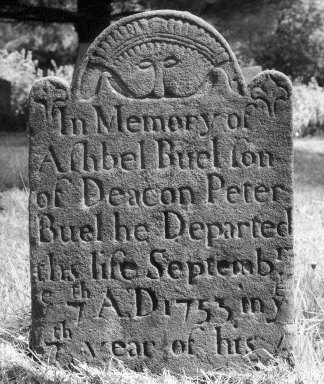 In Memory of
Aſhbel Buel ſon
of Deacon Peter
Buel he Departed
this life Septembr
e 7th A.D 1753 in ye
7th year of his